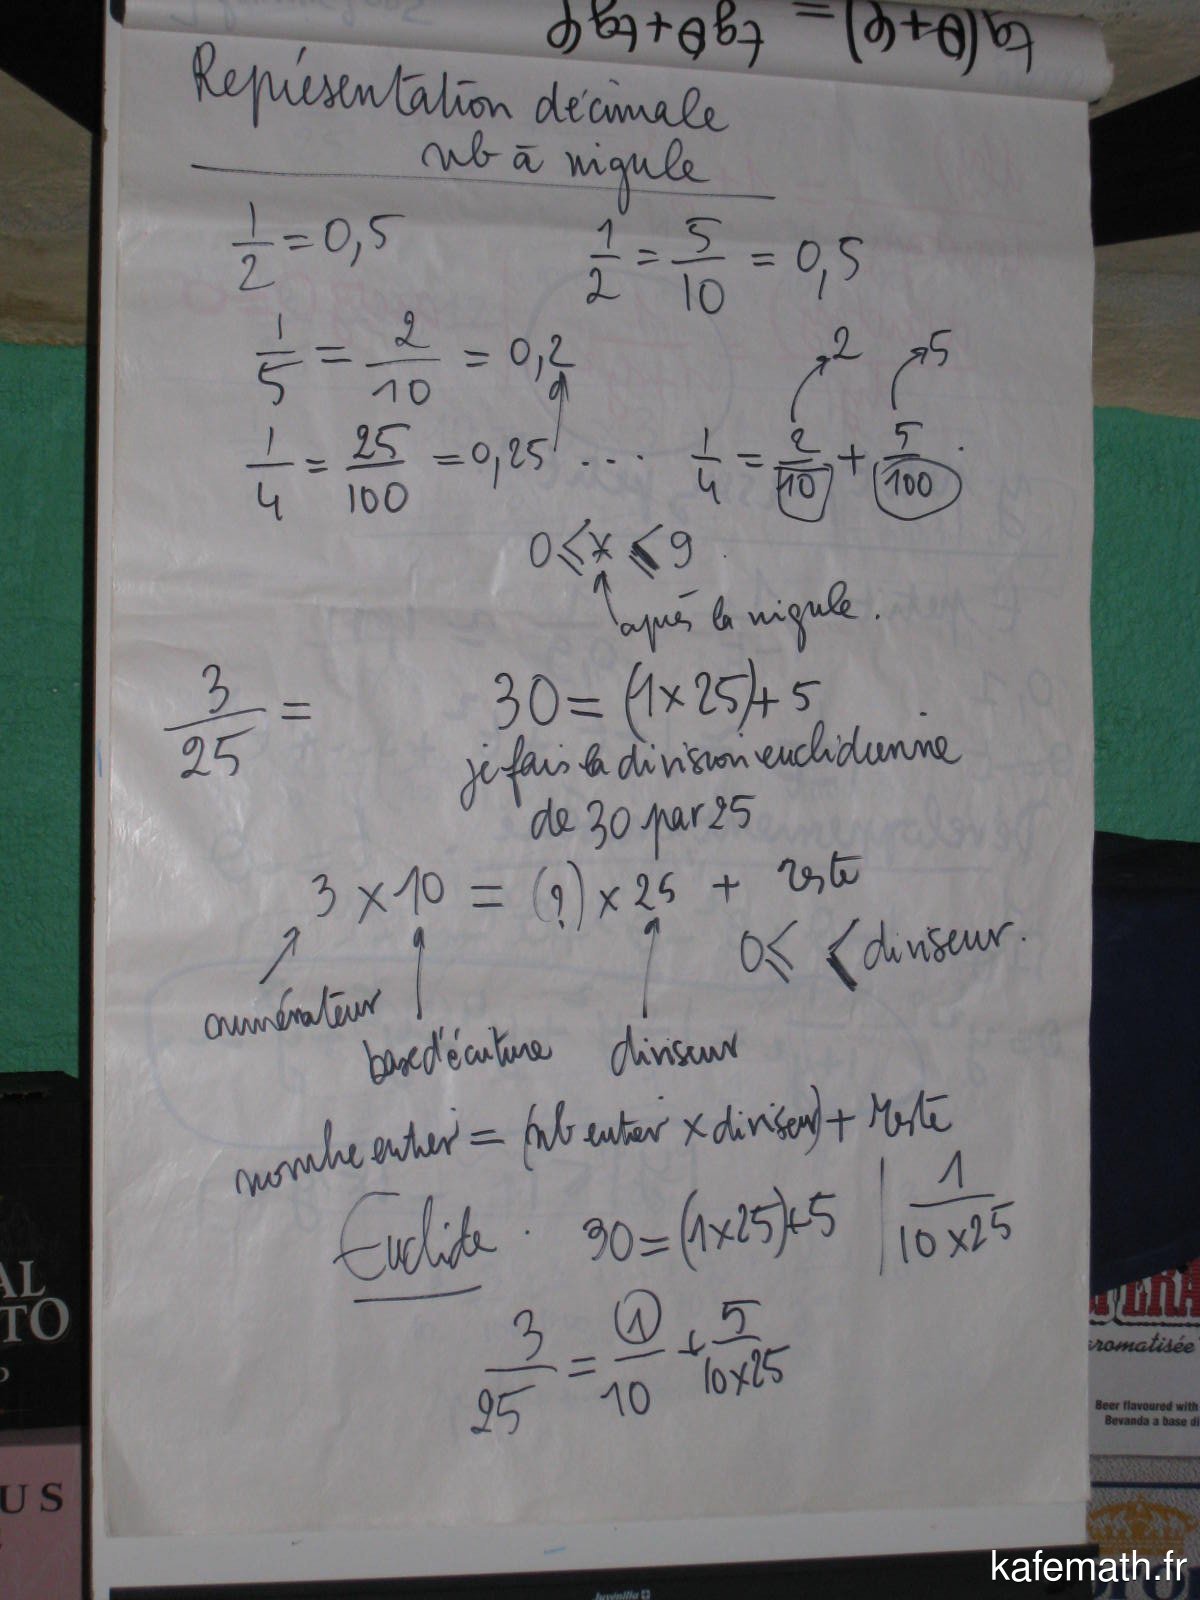 tg(θ+φ) = tgθ+tgφ
Représentation décimale
nb à virgule
1/2 = 0,5    1/2 = 5/10 = 0,5
1/5 = 2/10 = 0,2    2    5
1/4 = 25/100 = 0,25 ...    1/4 = 2/10 + 5/100 .
0 ⩽ x ⩽ 9 .
après la virgule.
3/25 =    30 = (1×25)+5
je fais la division euclidienne
de 30 par 25
3 × 10 = (?) × 25 + reste
0 ⩽ < diviseur.
numérateur
base d'écriture    diviseur
nombre entier = (nb entier × diviseur) + reste
Euclide .    30 = (1×25)+5 | 1/(10×25)
3/25 = 1/10 + 5/(10×25)
AL
TO
US
aromatisée
Beer flavoured with
Bevanda a base di
Juvenilia
kafemath.fr